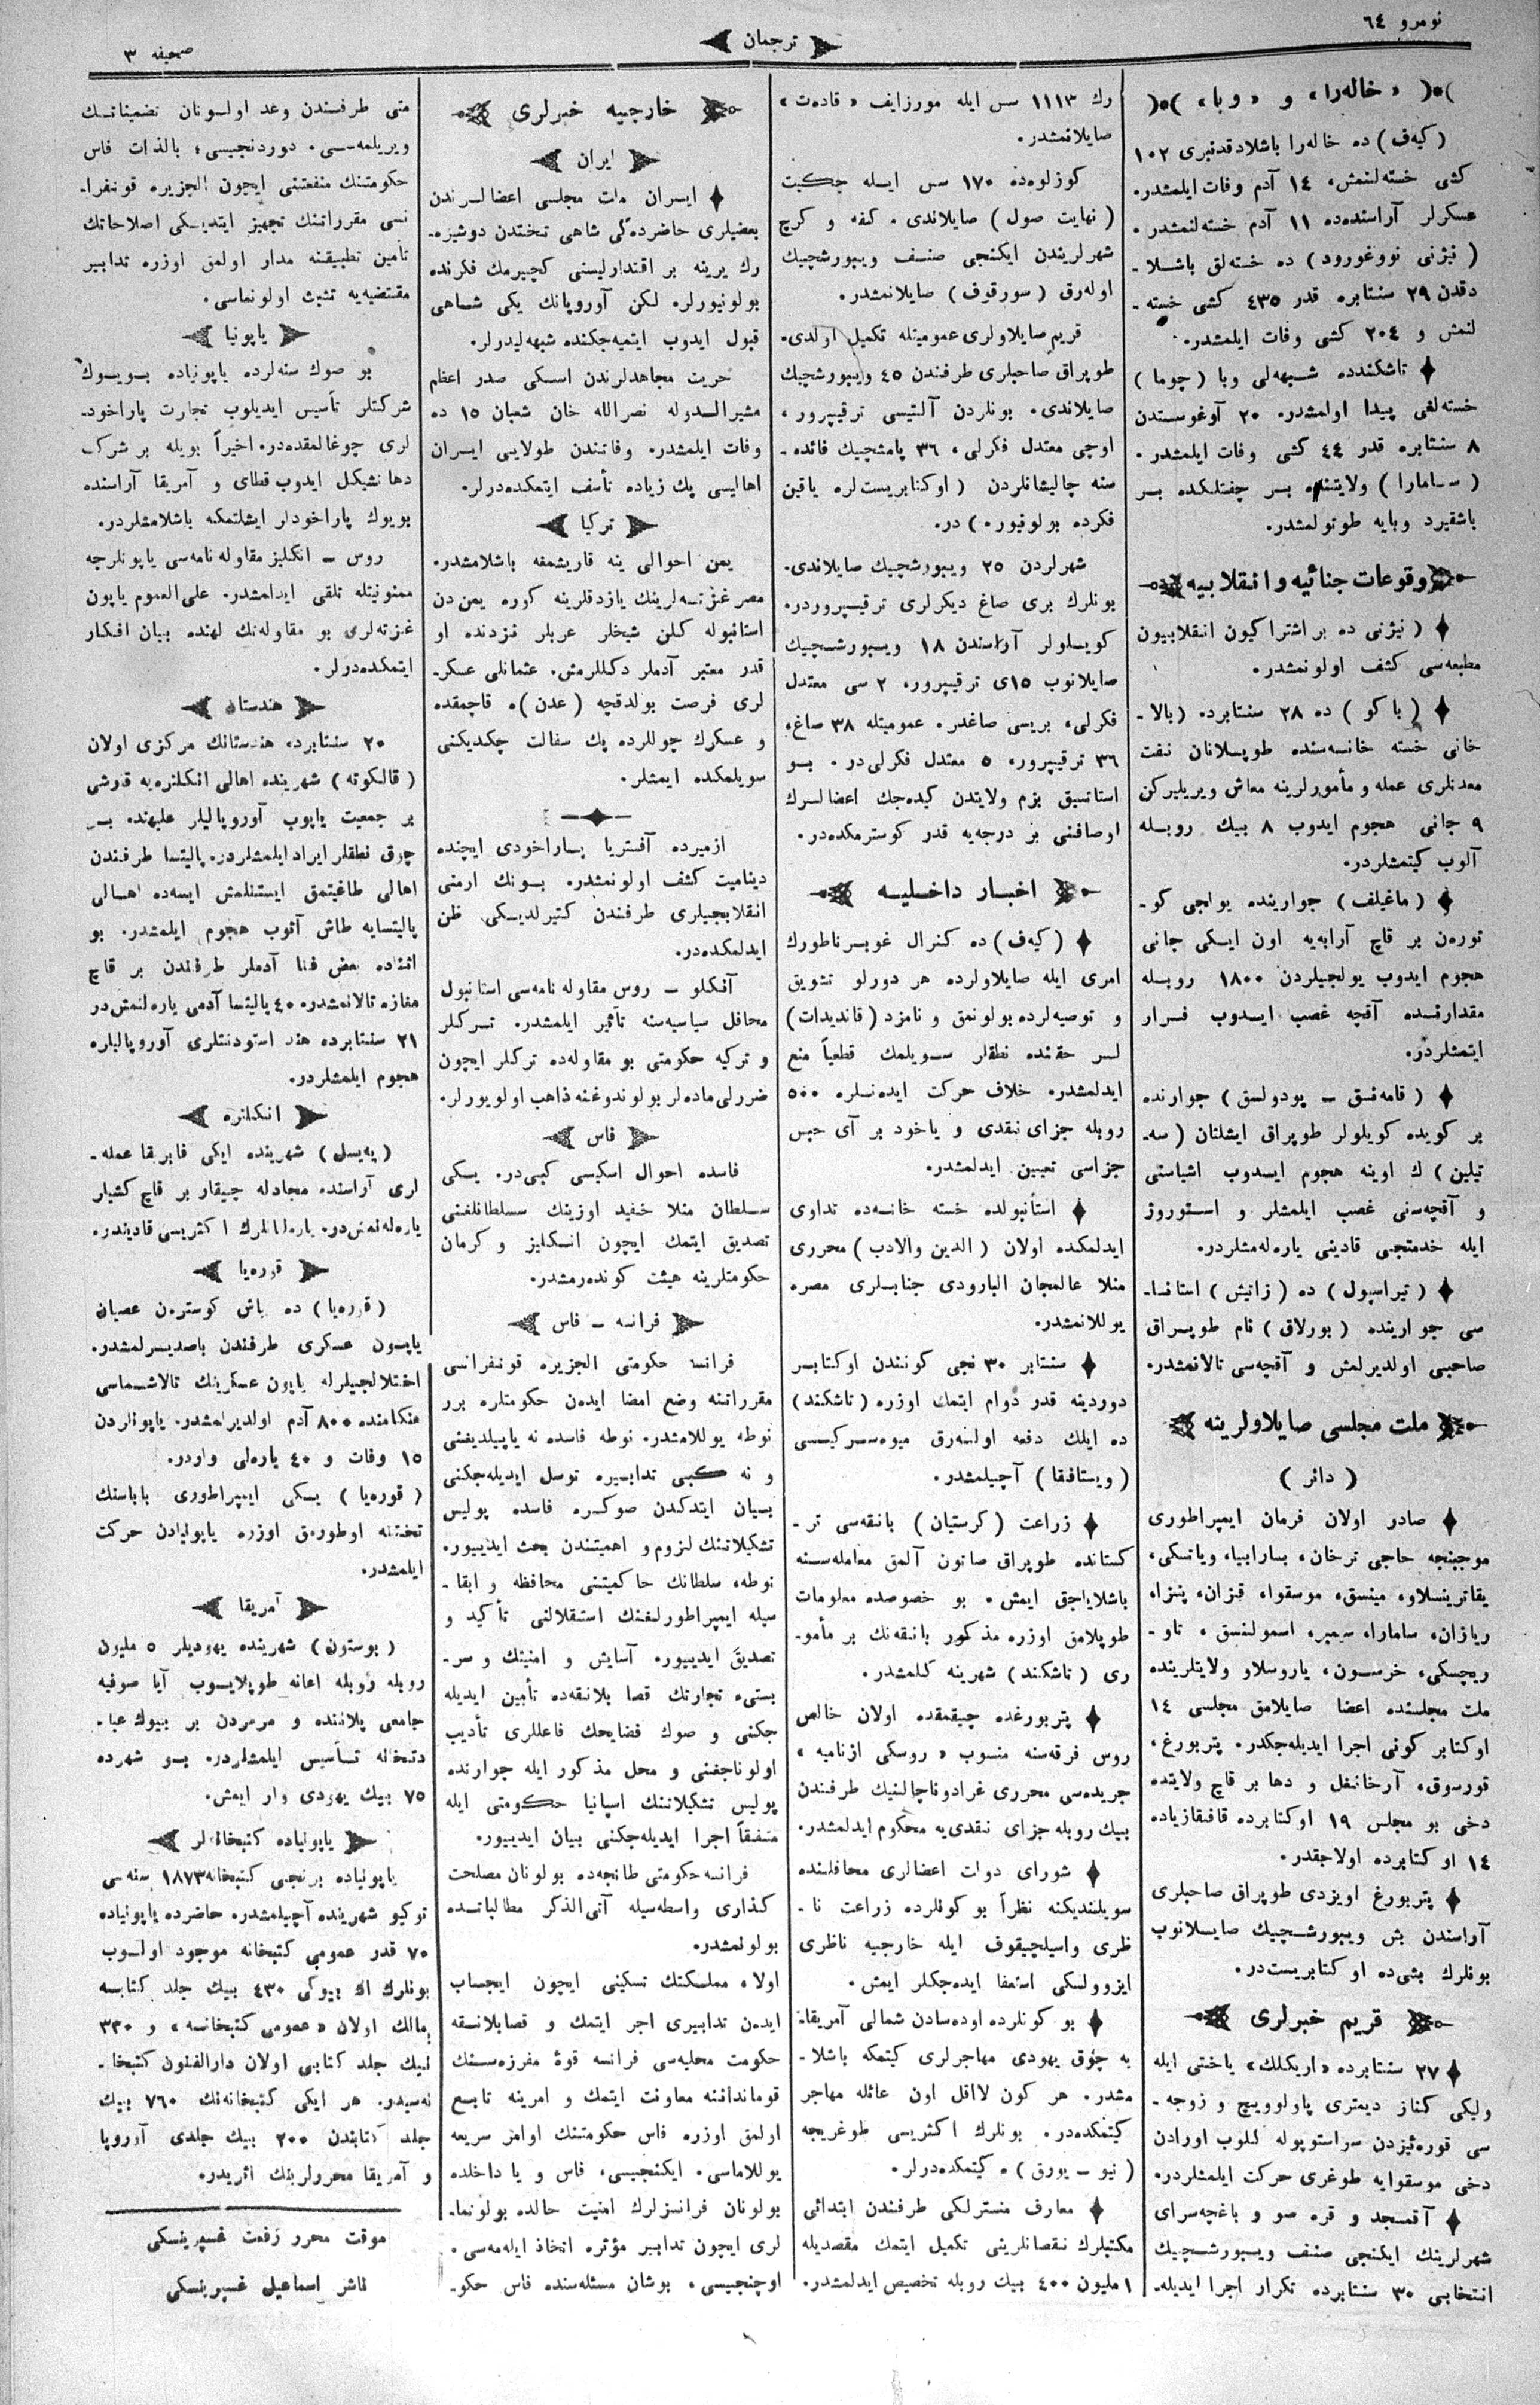 نومرو ٦٤
ترجمان
صحیفه ٣
)•( «خاله‌را» و «وبا» )•(
(كیه‌ف) ده خاله‌را باشلادقدنبری ١٠٢
كشی خسته‌لنمش، ١٤ آدم وفات ایلمشدر.
عسكرلر آراسنده‌ده ١١ آدم خسته‌لنمشدر.
(نیژنی نووغورود) ده خسته‌لق باشلا-
دقدن ٢٩ سنتابره قدر ٤٣٥ كشی خسته-
لنمش و ٢٠٤ كشی وفات ایلمشدر.
تاشكندده شبهه‌لی وبا (چوما)
خسته‌لغی پیدا اولمشدر. ٢٠ آوغوستدن
٨ سنتابره قدر ٤٤ كشی وفات ایلمشدر.
(سامارا) ولایتنده بر چفتلكده بر
باشقیرد وبایه طوتولمشدر.
وقوعات جنائیه و انقلابیه
(نیژنی ده بر اشتراكیون انقلابیون
مطبعه‌سی كشف اولونمشدر.
(باكو) ده ٢٨ سنتابرده (بالا-
خانی خسته خانه‌سنده طوپلانان نفت
معدنلری عمله و مأمورلرینه معاش ویریلیركن
٩ جانی هجوم ایدوب ٨ بیك روبله
آلوب كیتمشلردر.
(ماغیلف) جوارینده یولجی كو-
توره‌ن بر قاچ آرابه‌یه اون ایكی جانی
هجوم ایدوب یولجیلردن ١٨٠٠ روبله
مقدارنده آقچه غصب ایدوب فرار
ایتمشلردر.
(قامه‌نسق - پودولسق) جوارنده
بر كویده كویلولر طوپراق ایشلتان (سه-
تیلین) ك اوینه هجوم ایدوب اشیاسنی
و آقچه‌سنی غصب ایلمشلر و استوروژ
ایله خدمتجی قادینی یاره‌له‌مشلردر.
(تیراسپول) ده (زاتیش) استانا-
سی جوارینده (بورلاق) نام طوپراق
صاحبی اولدیرلمش و آقچه‌سی تالانمشدر.
ملت مجلسی صایلاولرینه
(دائر)
صادر اولان فرمان ایمپراطوری
موجبنجه حاجی ترخان، بسارابیا، ویاتسكی،
یقاترینسلاو، مینسق، موسقوا، قزان، پنزا،
ریازان، سامارا، سیمبر، اسمولنسق، تاو-
ریچسكی، خرسون، یاروسلاو ولایتلرینده
ملت مجلسنده اعضا صایلامق مجلسی ١٤
اوكتابر كونی اجرا ایدیله‌جكدر. پتربورغ،
قورسوق، آرخانغل و دها بر قاچ ولایتده
دخی بو مجلس ١٩ اوكتابرده قافقازیاده
١٤ اوكتابرده اولاجقدر.
پتربورغ اویزدی طوپراق صاحبلری
آراسندن بش ویبورشچیك صایلانوب
بونلرك بشی‌ده اوكتابریست‌در.
قریم خبرلری
٢٧ سنتابرده «اریكلك» یاختی ایله
ولیكی كناز دیمتری پاولوویچ و زوجه-
سی قوره‌ئیزدن سواستوپوله كلوب اورادن
دخی موسقوایه طوغری حركت ایلمشلردر.
آقمسجد و قره صو و باغچه‌سرای
شهرلرینك ایكنجی صنف ویبورشچیك
انتخابی ٣٠ سنتابرده تكرار اجرا ایدیله-
رك ١١١٣ سس ایله مورزایف «قاده‌ت»
صایلانمشدر.
كوزلوه‌ده ١٧٠ سس ایله جكیت
(نهایت صول) صایلاندی. كفه و كرچ
شهرلریندن ایكنجی صنف ویبورشچیك
اوله‌رق (سورقوف) صایلانمشدر.
قریم صایلاولری عمومیتله تكمیل اولدی.
طوپراق صاحبلری طرفندن ٤٥ ویبورشچیك
صایلاندی. بونلردن آلتیسی ترقیپرور،
اوچی معتدل فكرلی، ٣٦ پامشچیك فائده-
سنه چالیشانلردن (اوكتابریست‌لره یاقین
فكرده بولونیور.) در.
شهرلردن ٢٥ ویبورشچیك صایلاندی.
بونلرك بری صاغ دیكرلری ترقیپروردر.
كویلولر آراسندن ١٨ ویبورشچیك
صایلانوب ١٥ی ترقیپرور، ٢ سی معتدل
فكرلی، بریسی صاغدر. عمومیتله ٣٨ صاغ،
٣٦ ترقیپرور، ٥ معتدل فكرلی‌در. بو
استاتسیق بزم ولایتدن كیده‌جك اعضالرك
اوصافنی بر درجه‌یه قدر كوسترمكده‌در.
اخبار داخلیه
(كیه‌ف) ده كنرال غوبرناطورك
امری ایله صایلاولرده هر دورلو تشویق
و توصیه‌لرده بولونمق و نامزد (قاندیدات)
لر حقنده نطقلر سویلمك قطعیاً منع
ایدلمشدر. خلاف حركت ایده‌نلره ٥٠٠
روبله جزای نقدی و یاخود بر آی حبس
جزاسی تعیین ایدلمشدر.
استأنبولده خسته خانه‌ده تداوی
ایدلمكده اولان (الدین والادب) محرری
منلا عالمجان البارودی جنابلری مصره
یوللانمشدر.
سنتابر ٣٠ نجی كونندن اوكتابر
دوردینه قدر دوام ایتمك اوزره (تاشكند)
ده ایلك دفعه اوله‌رق میوه سركیسی
(ویستافقا) آچیلمشدر.
زراعت (كرستیان) بانقه‌سی تر-
كستانده طوپراق صاتون آلمق معامله‌سنه
باشلایاجق ایمش. بو خصوصده معلومات
طوپلامق اوزره مذكور بانقه‌نك بر مأمو-
ری (تاشكند) شهرینه كلمشدر.
پتربورغده چیقمقده اولان خالص
روس فرقه‌سنه منسوب «روسكی ازنامیه»
جریده‌سی محرری غرادوناچالنیك طرفندن
بیك روبله جزای نقدی‌یه محكوم ایدلمشدر.
شورای دولت اعضالری محافلنده
سویلندیكنه نظراً بو كونلرده زراعت نا-
ظری واسیلچیقوف ایله خارجیه ناظری
ایزوولسكی استعفا ایده‌جكلر ایمش.
بو كونلرده اوده‌سادن شمالی آمریقا-
یه چوق یهودی مهاجرلری كیتمكه باشلا-
مشدر. هر كون لااقل اون عائله مهاجر
كیتمكده‌در. بونلرك اكثریسی طوغریجه
(نیو - یورق)، كیتمكده‌درلر.
معارف منسترلكی طرفندن ابتدائی
مكتبلرك نقصانلرینی تكمیل ایتمك مقصدیله
١ ملیون ٤٠٠ بیك روبله تخصیص ایدلمشدر.
خارجیه خبرلری
ایران
ایران ملت مجلسی اعضالرندن
بعضیلری حاضرده‌كی شاهی تختدن دوشیره-
رك یرینه بر اقتدارلیسنی كچیرمك فكرنده
بولونیورلر. لكن آوروپانك یكی شاهی
قبول ایدوب ایتمیه‌جكنده شبهه‌لیدرلر.
حریت مجاهدلرندن اسكی صدر اعظم
مشیرالدوله نصرالله خان شعبان ١٥ ده
وفات ایلمشدر. وفاتندن طولایی ایران
اهالیسی پك زیاده تأسف ایتمكده‌درلر.
تركیا
یمن احوالی ینه قاریشمغه باشلامشدر.
مصر غزته‌لرینك یازدقلرینه كوره یمن‌دن
استانبوله كلن شیخلر عربلر نزدنده او
قدر معتبر آدملر دكللرمش. عثمانلی عسكر-
لری فرصت بولدقچه (عدن)، قاچمقده
و عسكرك چوللرده پك سفالت چكدیكنی
سویلمكده ایمشلر.
ازمیرده آفستریا پاراخودی ایچنده
دینامیت كشف اولونمشدر. بونك ارمنی
انقلابجیلری طرفندن كتیرلدیكی ظن
ایدلمكده‌در.
آنكلو - روس مقاوله نامه‌سی استانبول
محافل سیاسیه‌سنه تأثیر ایلمشدر. تركلر
و تركیه حكومتی بو مقاوله‌ده تركلر ایچون
ضررلی ماده‌لر بولوندوغنه ذاهب اولویورلر.
فاس
فاسده احوال اسكیسی كبی‌در. یكی
سلطان منلا حفید اوزینك سلطانلغنی
تصدیق ایتمك ایچون انكلیز و كرمان
حكومتلرینه هیئت كونده‌رمشدر.
فرانسه - فاس
فرانسه حكومتی الجزیره قونفرانسی
مقرراتنه وضع امضا ایده‌ن حكومتلره برر
نوطه یوللامشدر. نوطه فاسده نه یاپیلدیغنی
و نه كبی تدابیره توسل ایدیله‌جكنی
بیان ایتدكدن صوكره فاسده پولیس
تشكیلاتنك لزوم و اهمیتندن بحث ایدییور.
نوطه، سلطانك حاكمیتنی محافظه و ابقا-
سیله ایمپراطورلغنك استقلالنی تأكید و
تصدیق ایدییور. آسایش و امنیتك و سر-
بستیء تجارتك قصا بلانقه‌ده تأمین ایدیله
جكنی و صوك فضایحك فاعللری تأدیب
اولوناجغنی و محل مذكور ایله جوارنده
پولیس تشكیلاتنك اسپانیا حكومتی ایله
متفقاً اجرا ایدیله‌جكنی بیان ایدییور.
فرانسه حكومتی طانجه‌ده بولونان مصلحت
كذاری واسطه‌سیله آتی‌الذكر مطالباتده
بولونمشدر.
اولا، مملكتك تسكینی ایچون ایجاب
ایده‌ن تدابیری اجرا ایتمك و قصابلانقه
حكومت محلیه‌سی فرانسه قوهٔ مفرزه‌سنك
قوماندانه معاونت ایتمك و امرینه تابع
اولمق اوزره فاس حكومتنك اوامر سریعه
یوللاماسی. ایكنجیسی، فاس و یا داخلده
بولونان فرانسزلرك امنیت حالده بولونما-
لری ایچون تدابیر مؤثره اتخاذ ایله‌مه‌سی.
اوچنجیسی، بوشان مسئله‌سنده فاس حكو-
متی طرفندن وعد اولونان تضمیناتك
ویریلمه‌سی. دوردنجیسی؛ بالذات فاس
حكومتنك منفعتنی ایچون الجزیره قونفرا-
نسی مقرراتنك تجهیز ایتدیكی اصلاحاتك
تأمین تطبیقنه مدار اولمق اوزره تدابیر
مقتضیه‌یه تشبث اولونماسی.
یاپونیا
بو صوك سنه‌لرده یاپونیاده بویوك
شركتلر تأسیس ایدیلوب تجارت پاراخود-
لری چوغالمقده‌در. اخیراً بویله بر شركت
دها تشكیل ایدوب قطای و آمریقا آراسنده
بویوك پاراخودلر ایشلتمكه باشلامشلردر.
روس - انكلیز مقاوله نامه‌سی یاپونلرجه
ممنونیتله تلقی ایدلمشدر. علی‌العموم یاپون
غزته‌لری بو مقاوله‌نك لهنده بیان افكار
ایتمكده‌درلر.
هندستان
٢٠ سنتابرده هندستانك مركزی اولان
(قالكوته) شهرینده اهالی انكلتره‌یه قارشی
بر جمعیت یاپوب آوروپالیلر علیهنده بر
چوق نطقلر ایراد ایلمشلردر. پالیتسا طرفندن
اهالی طاغیتمق ایستنلمش ایسه‌ده اهالی
پالیتسایه طاش آتوب هجوم ایلمشدر. بو
اثناده بعض فنا آدملر طرفندن بر قاچ
مغازه تالانمشدر. ٤٠ پالیتسا آدمی یاره‌لنمش‌در
٢١ سنتابرده هند استودنتلری آوروپالیلره
هجوم ایلمشلردر.
انكلتره
(په‌یسل) شهرینده ایكی فابریقا عمله-
لری آراسنده مجادله چیقار بر قاچ كشیلر
یاره‌له‌نمش‌در. یاره‌لانانلرك اكثریسی قادیندر.
قوره‌یا
(قوره‌یا) ده باش كوستره‌ن عصیان
یاپون عسكری طرفندن باصدیرلمشدر.
اختلالجیلرله یاپون عسكرینك تالاشماسی
هنكامنده ٨٠٠ آدم اولدیرلمشدر. یاپونلردن
١٥ وفات و ٤٠ یاره‌لی واردر.
(قوره‌یا) یكی ایمپراطوری باباسنك
تختنه اوطورمق اوزره یاپونیادن حركت
ایلمشدر.
آمریقا
(بوستون) شهرینده یهودیلر ٥ ملیون
روبله روبله اعانه طوپلایوب آیا صوفیه
جامعی پلاننده و مرمردن بر بیوك عبا-
دتخانه تأسیس ایلمشلردر. بو شهرده
٧٥ بیك یهودی وار ایمش.
یاپونیاده كتبخانه‌لر
یاپونیاده برنجی كتبخانه ١٨٧٣ سنه‌سی
توكیو شهرینده آچیلمشدر. حاضرده یاپونیاده
٧٠ قدر عمومی كتبخانه موجود اولوب
بونلرك اك بیوكی ٤٣٠ بیك جلد كتابه
مالك اولان «عمومی كتبخانه» و ٣٣٠
بیك جلد كتابی اولان دارالفنون كتبخا-
نه‌سیدر. هر ایكی كتبخانه‌نك ٧٦٠ بیك
جلد كتابندن ٢٠٠ بیك جلدی آوروپا
و آمریقا محررلرینك اثریدر.
موقت محرر رفعت غسپرینسكی
ناشر اسماعیل غسپرینسكی